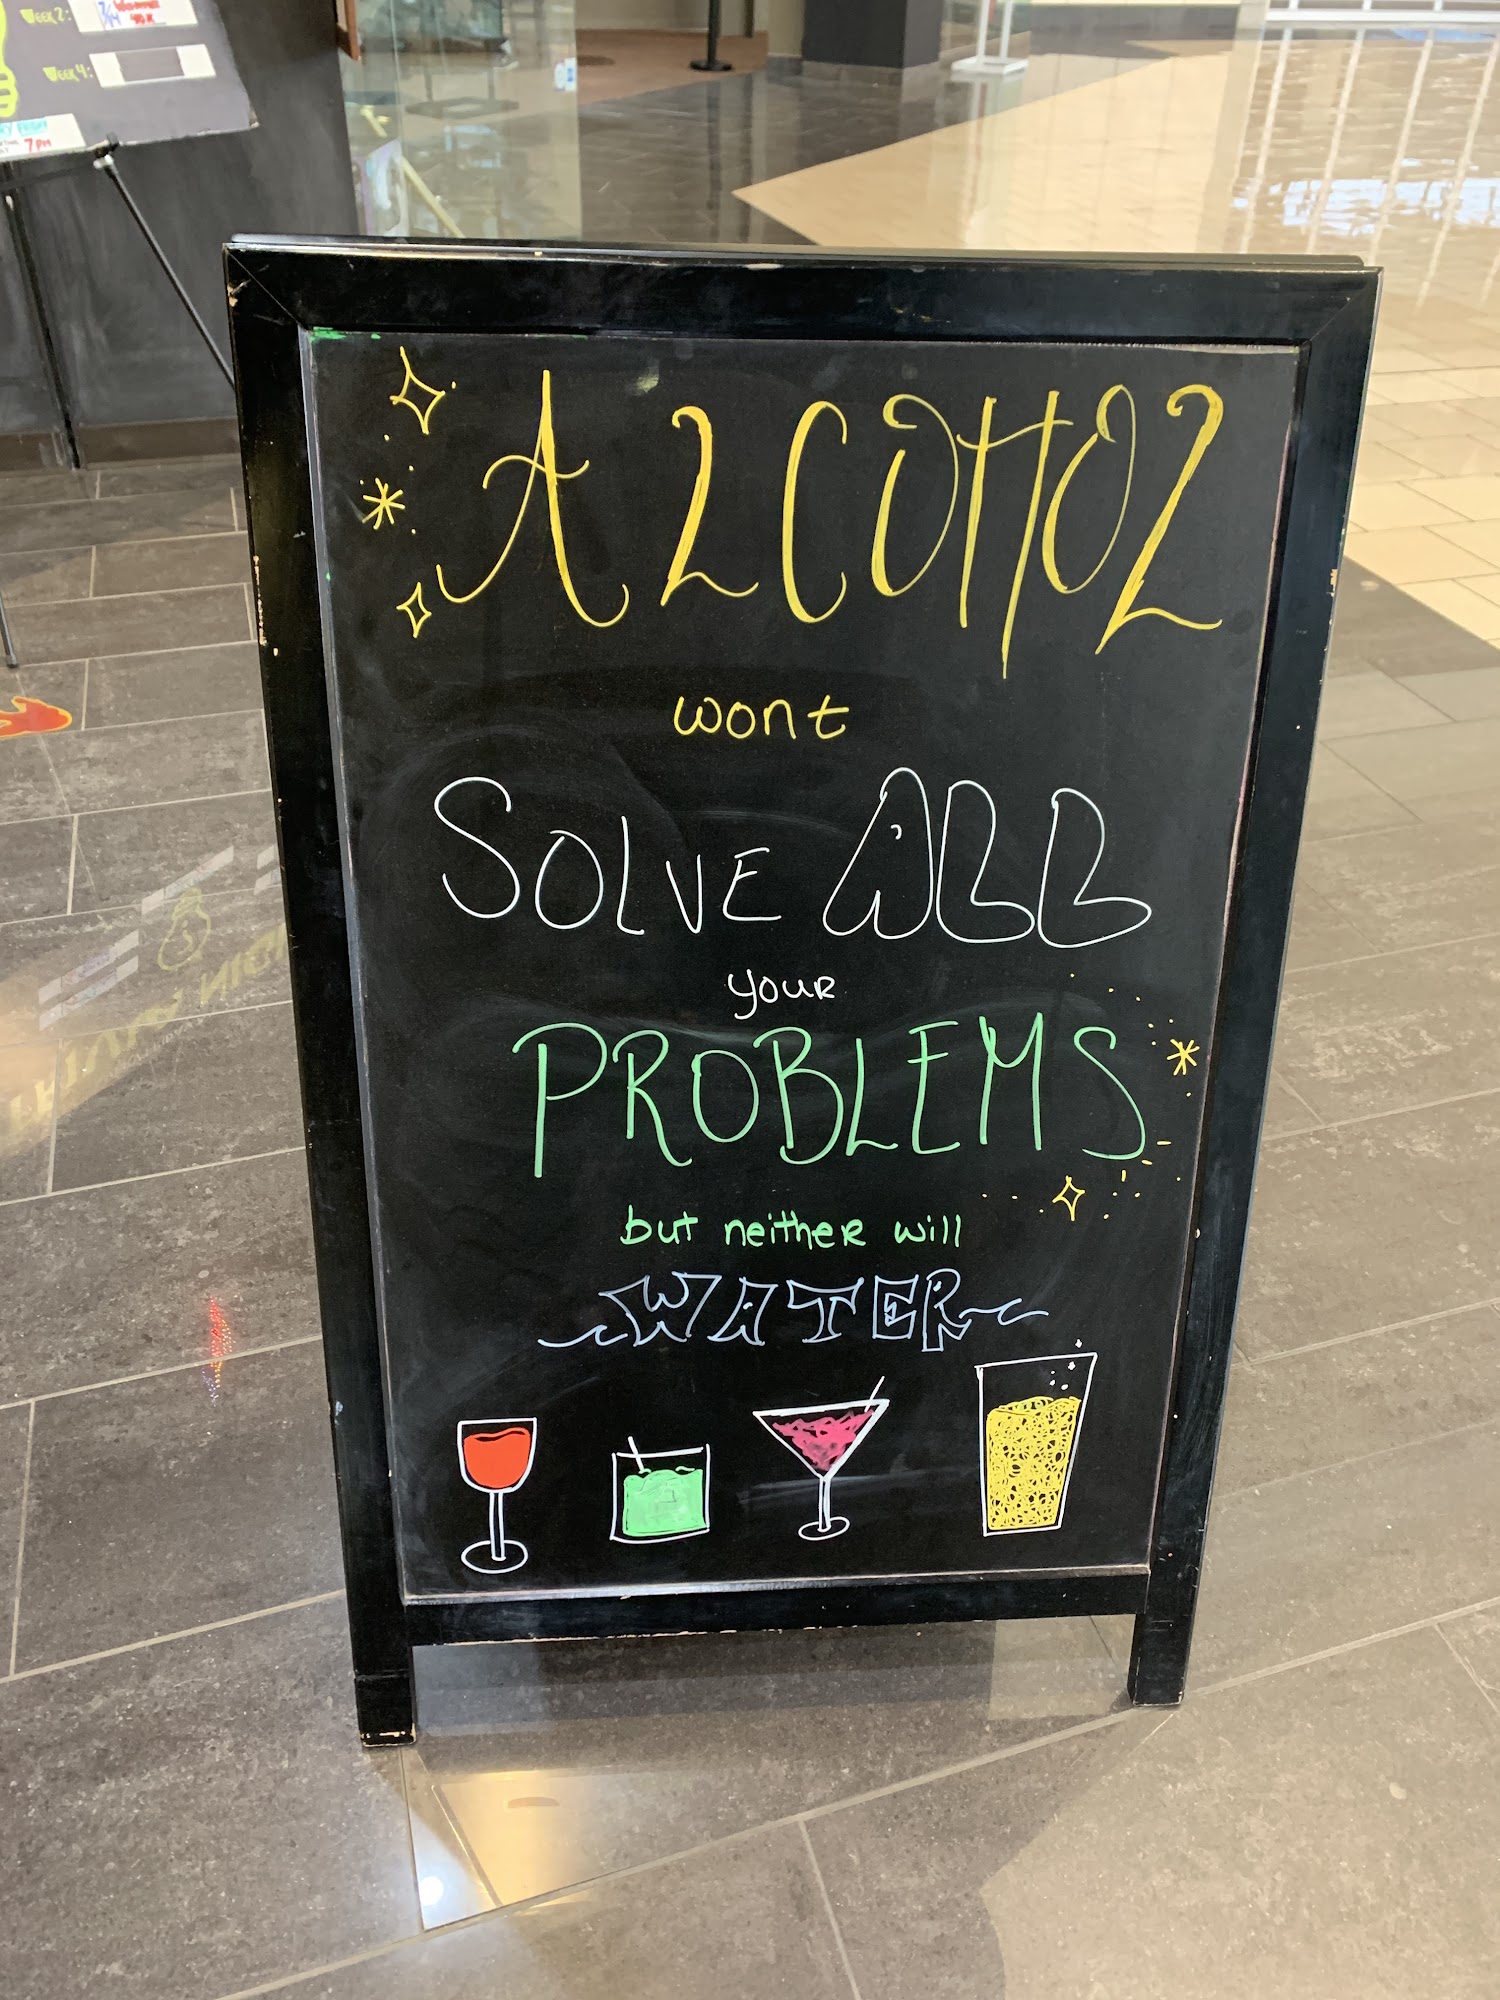 WEEK 2:
WEEK 4:
7PM
ALCOHOL
wont
SOLVE ALL
your
PROBLEMS
but neither will
WATER